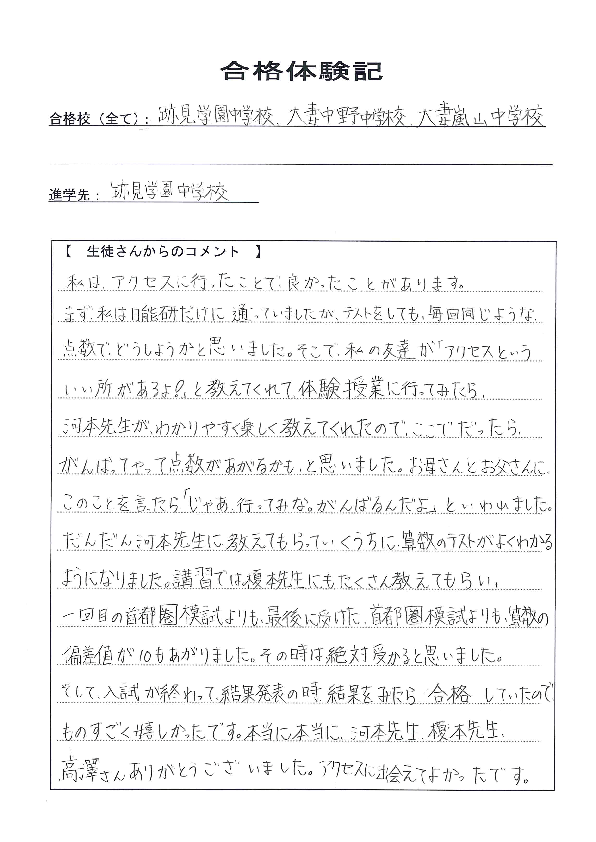 合格体験記
合格校（全て）：跡見学園中学校、大妻中野中学校、大妻嵐山中学校
進学先：跡見学園中学校
【　生徒さんからのコメント　】
私は、アクセスに行ったことで、良かったことがあります。
まず、私は日能研だけに通っていましたが、テストをしても、毎回同じような
点数で、どうしようかと思いました。そこで、私の友達が「アクセスという
いい所があるよ？」と教えてくれて、体験授業に行ってみたら、
河本先生が、わかりやすく楽しく教えてくれたので、ここでだったら、
がんばってやって点数があがるかも、と思いました。お母さんとお父さんに、
このことを言ったら「じゃあ、行ってみな。がんばるんだよ。」といわれました。
だんだん河本先生に教えてもらっていくうちに、算数のテストがよくわかる
ようになりました。講習では榎本先生にもたくさん教えてもらい、
一回目の首都圏模試よりも、最後に受けた、首都圏模試よりも、算数の
偏差値が10もあがりました。その時は絶対受かると思いました。
そして、入試が終わって、結果発表の時、結果をみたら　合格　していたので
ものすごく嬉しかったです。本当に、本当に、河本先生、榎本先生、
高澤さんありがとうございました。アクセスに出会えてよかったです。